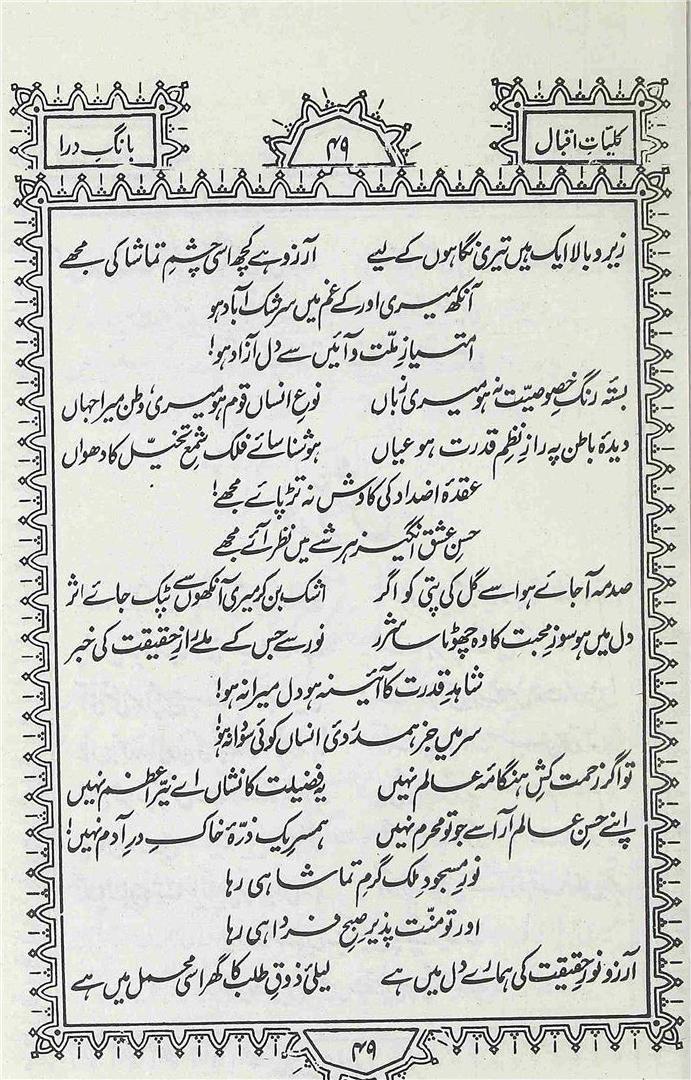 کلیاتِ اقبال
۴۹
بانگِ درا
زیر و بالا ایک ہیں تیری نگاہوں کے لیے آرزو ہے کچھ اسی چشمِ تماشا کی مجھے
آنکھ میری اور کے غم میں سرشک آباد ہو
امتیازِ ملّت و آئیں سے دل آزاد ہو!
بستۂ رنگِ خصوصیّت نہ ہو میری زباں نوعِ انساں قوم ہو میری، وطن میرا جہاں
دیدۂ باطن پہ رازِ نظمِ قدرت ہو عیاں ہو شناسائے فلک شمعِ تخیّل کا دھواں
عقدۂ اضداد کی کاوش نہ تڑپائے مجھے!
حسنِ عشق انگیز ہر شے میں نظر آئے مجھے
صدمہ آ جائے ہوا سے گل کی پتی کو اگر اشک بن کر میری آنکھوں سے ٹپک جائے اثر
دل میں ہو سوزِ محبت کا وہ چھوٹا سا شرر نور سے جس کے ملے رازِ حقیقت کی خبر
شاہدِ قدرت کا آئینہ ہو دل میرا نہ ہو!
سر میں جز ہمدردیٔ انساں کوئی سودا نہ ہو!
تو اگر زحمت کشِ ہنگامۂ عالم نہیں یہ فضیلت کا نشاں اے نیّرِ اعظم نہیں
اپنے حسنِ عالم آرا سے جو تو محرم نہیں ہمسرِ یک ذرّۂ خاکِ درِ آدم نہیں!
نورِ مسجودِ ملک گرمِ تماشا ہی رہا
اور تو منّت پذیرِ صبحِ فردا ہی رہا
آرزو نورِ حقیقت کی ہمارے دل میں ہے لیلیٔ ذوقِ طلب کا گھر اسی محمل میں ہے
۴۹